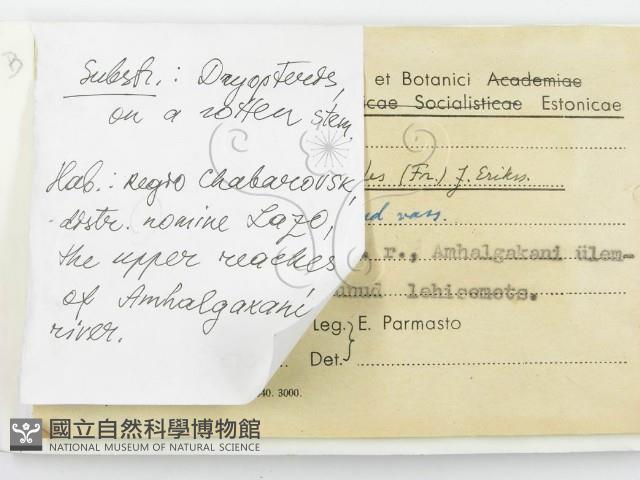 Substr.: Dryopteris,
on a rotten stem.
Hab.: Regio Chabarovsk,
distr. nomine Lazo,
the upper reaches
of Amhalgakani
river.
et Botanici Academiae
icae Socialisticae Estonicae
(Fr.) J. Erikss.
r., Amhalgakani ülem-
lehisemets.
Leg. E. Parmasto
Det.
40. 3000.
國立自然科學博物館
NATIONAL MUSEUM OF NATURAL SCIENCE